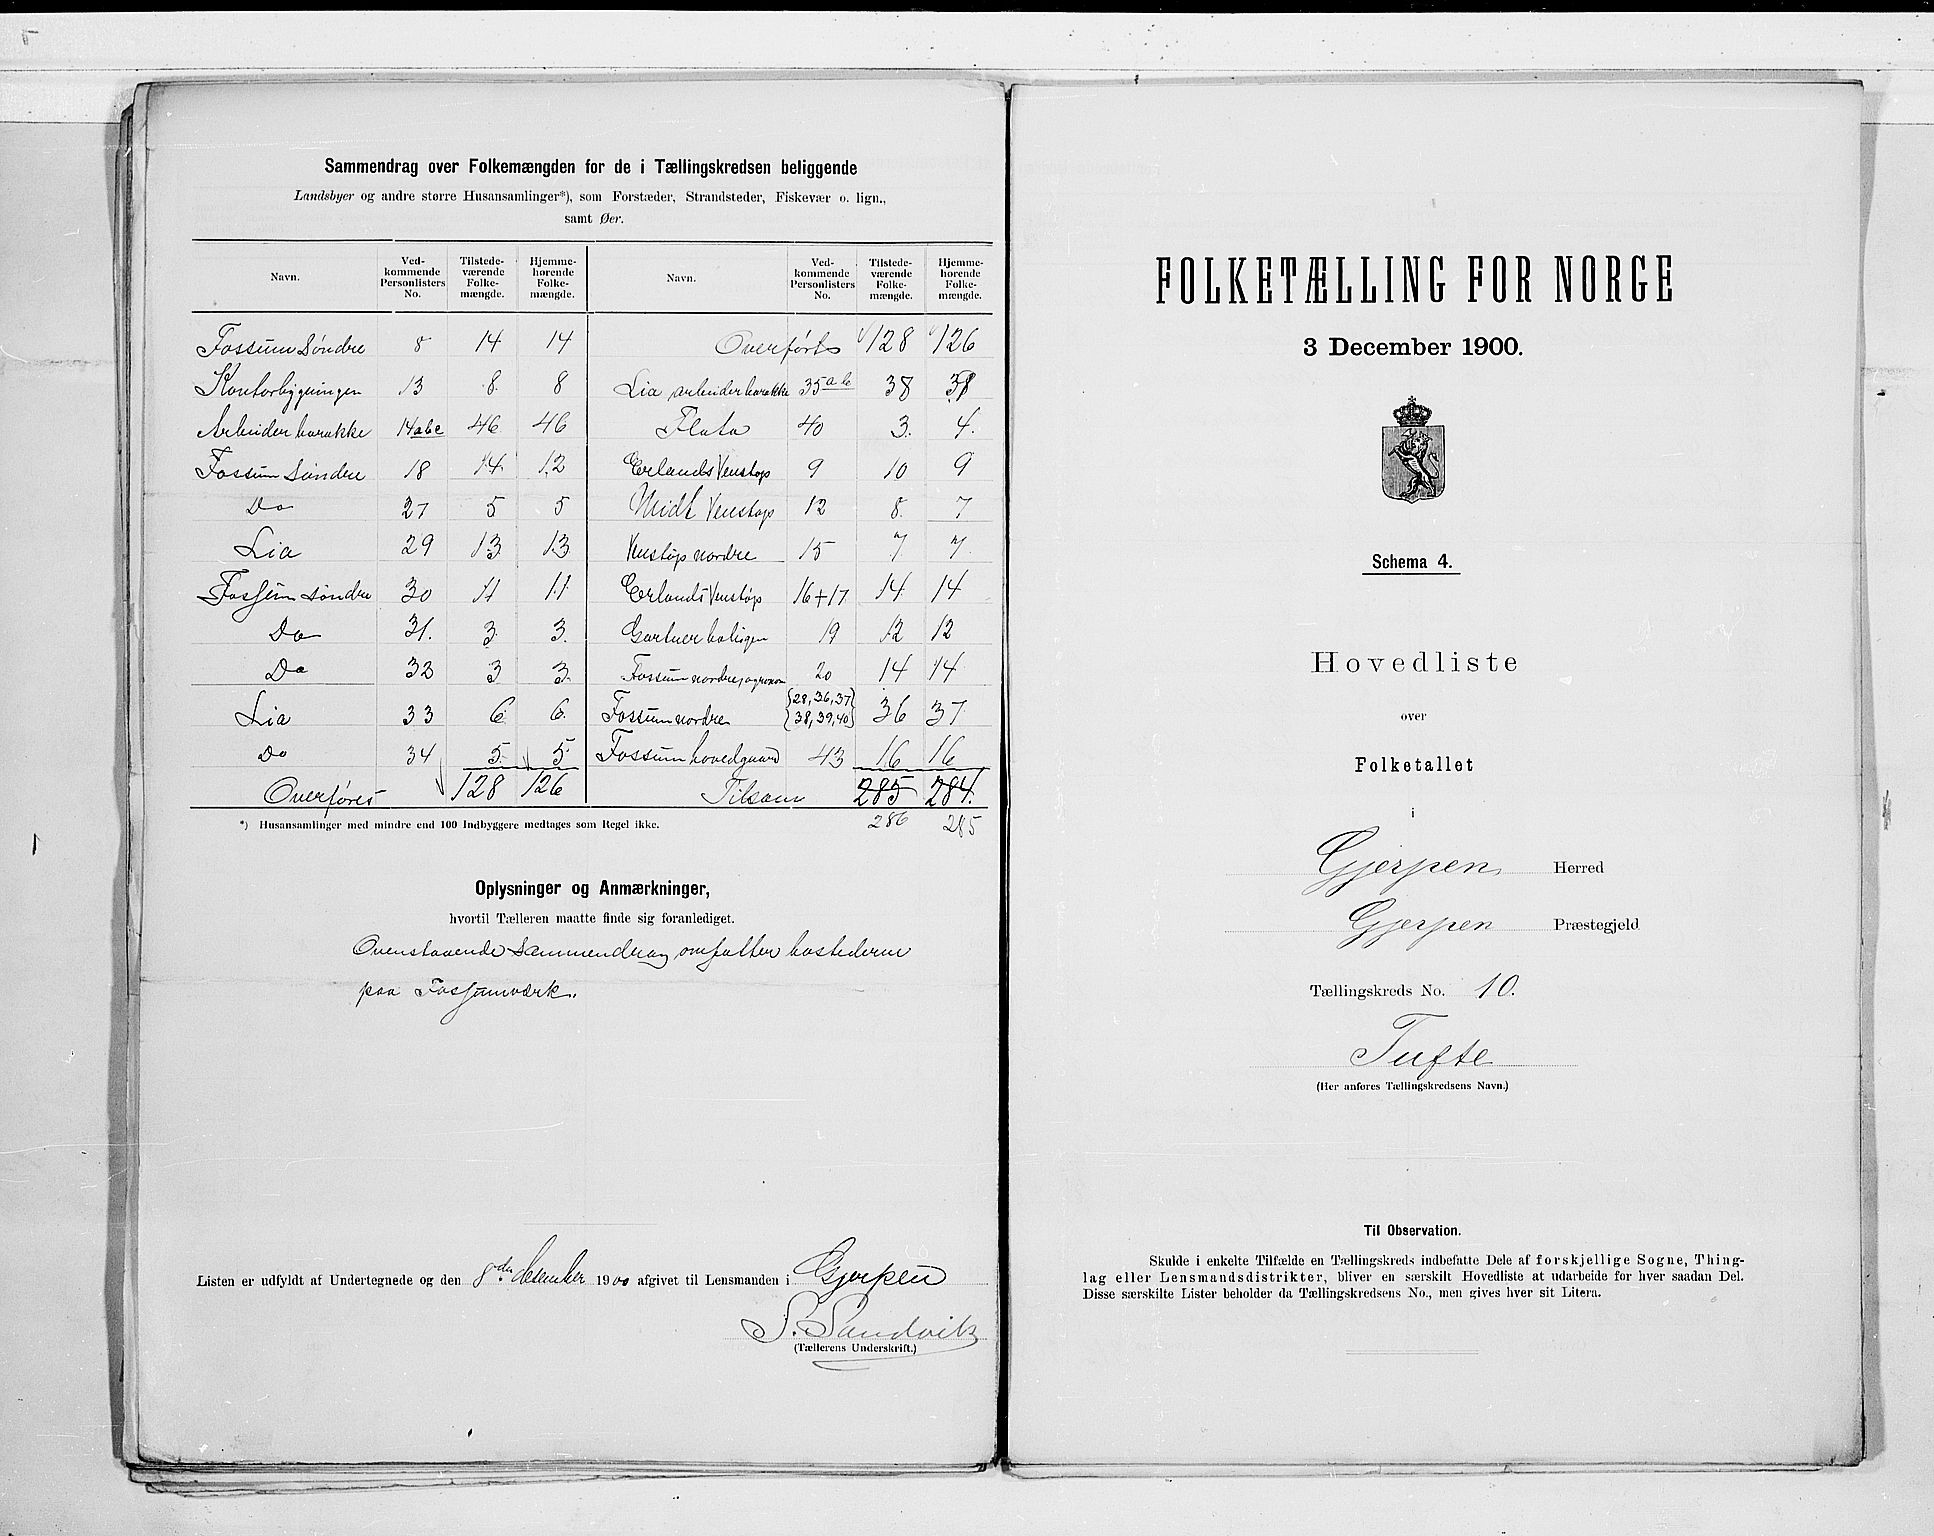 Sammendrag over Folkemængden for de i Tællingskredsen beliggende
Landsbyer og andre større Husansamlinger*), som Forstæder, Strandsteder, Fiskevær o. lign.,
samt Øer.
Navn. Vedkommende Personlisters No. Tilstedeværende Folkemængde. Hjemmehørende Folkemængde. Navn. Vedkommende Personlisters No. Tilstedeværende Folkemængde. Hjemmehørende Folkemængde.
Fossum Søndre 8 14 14 Overførts 128 126
Kontorbygningen 13 8 8 Lia arbeiderbarakke 35 a b 38 38
Arbeiderbarakke 14 abc 46 46 Flata 40 3 4
Fossum Søndre 18 14 12 Erlands Venstøp 9 10 9
Do 27 5 5 Midt Venstøp 12 8 7
Lia 29 13 13 Venstøp nordre 15 7 7
Fossum søndre 30 11 11 Erlands Venstøp 16+17 14 14
Do 31. 3 3. Gartnerboligen 19 12 12
Do 32 3 3 Fossum nordre, agronom 20 14 14
Lia 33 6 6 Fossum nordre {28, 36, 37 38, 39, 40} 36 37
Do 34 5 5 Fossum hovedgaard 43 16 16
Overføres 128 126 Tilsam 285 284.
286 285
*) Husansamlinger med mindre end 100 Indbyggere medtages som Regel ikke.
Oplysninger og Anmærkninger,
hvortil Tælleren maatte finde sig foranlediget.
Ovenstaaende Sammendrag omfatter bostederne
paa Fossumværk.
Listen er udfyldt af Undertegnede og den 8de desember 1900 afgivet til Lensmanden i Gjerpen
S. Sandvik
(Tællerens Underskrift.)
FOLKETÆLLING FOR NORGE
3 December 1900.
Schema 4.
Hovedliste
over
Folketallet
i
Gjerpen Herred
Gjerpen Præstegjeld
Tællingskreds No. 10.
Tufte
(Her anføres Tællingskredsens Navn.)
Til Observation.
Skulde i enkelte Tilfælde en Tællingskreds indbefatte Dele af forskjellige Sogne, Thing-
lag eller Lensmandsdistrikter, bliver en særskilt Hovedliste at udarbeide for hver saadan Del.
Disse særskilte Lister beholder da Tællingskredsens No., men gives hver sit Litera.